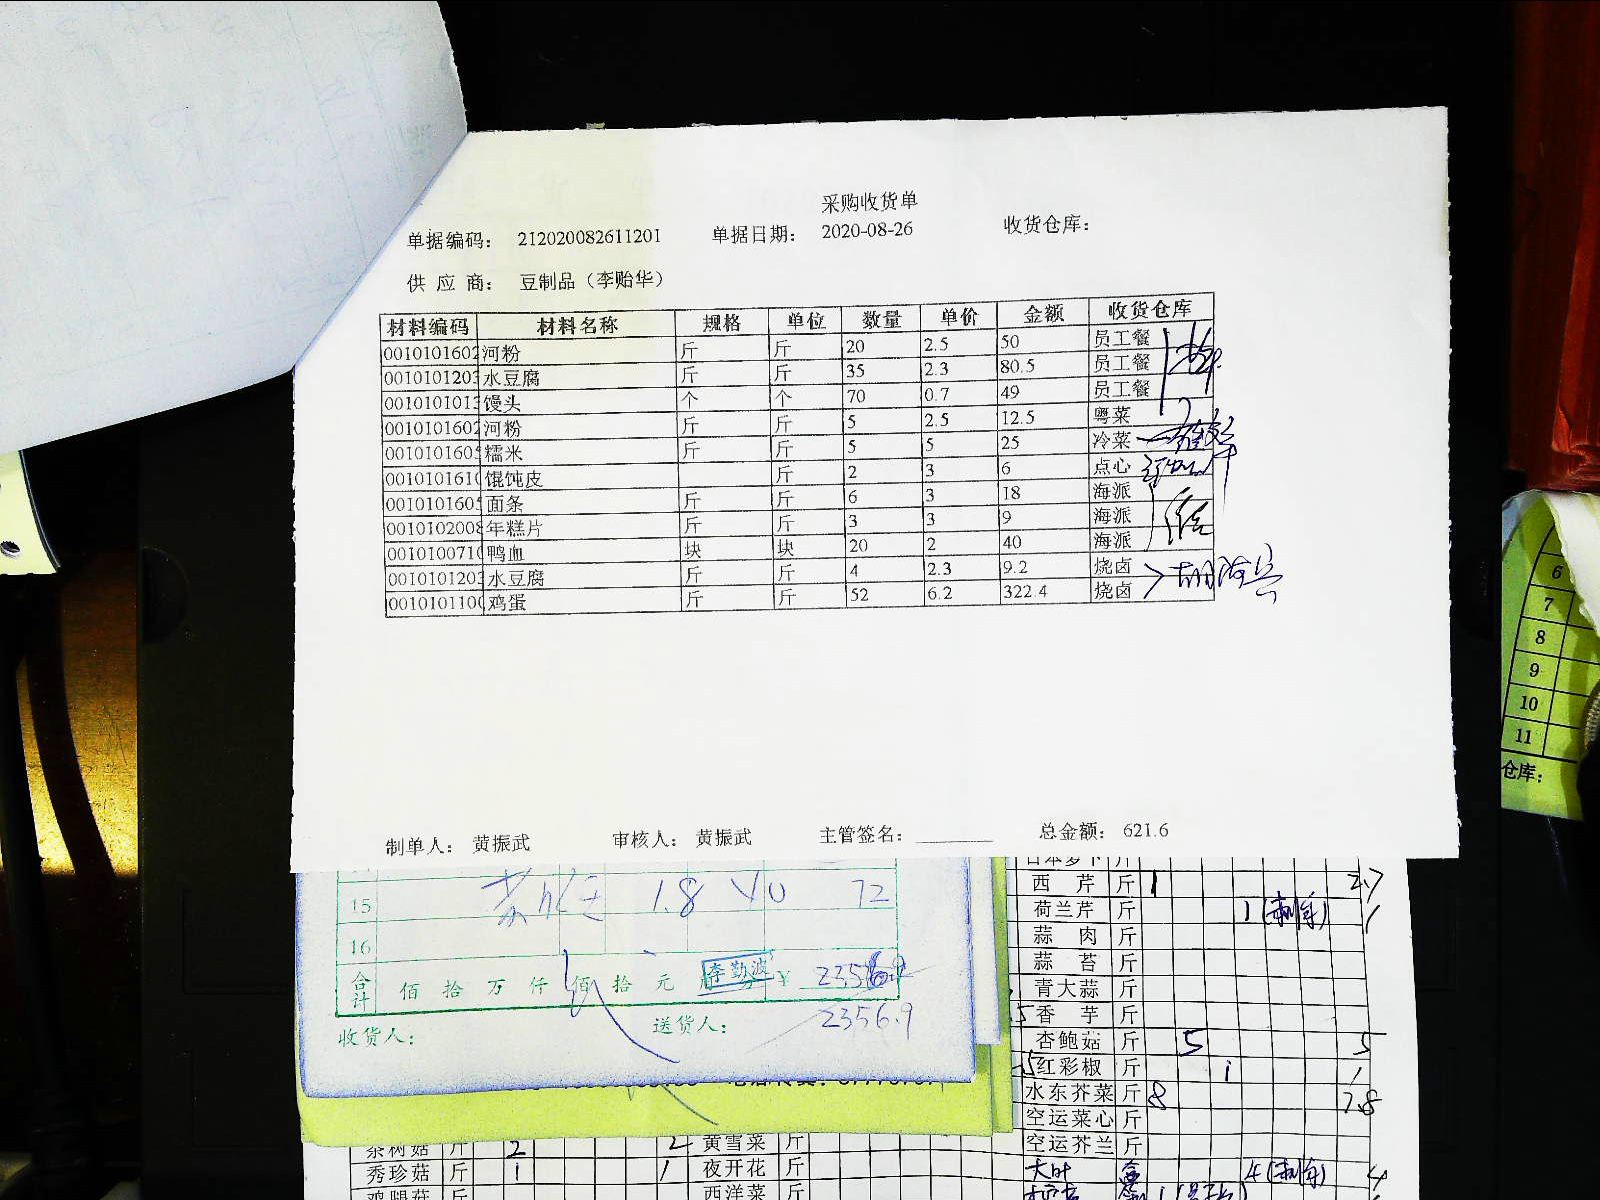 采购收货单
单据编码： 212020082611201 单据日期： 2020-08-26 收货仓库：
供 应 商： 豆制品（李贻华）
材料编码 材料名称 规格 单位 数量 单价 金额 收货仓库
0010101602 河粉 斤 斤 20 2.5 50 员工餐
0010101203 水豆腐 斤 斤 35 2.3 80.5 员工餐
0010101013 馒头 个 个 70 0.7 49 员工餐
0010101602 河粉 斤 斤 5 2.5 12.5 粤菜
0010101605 糯米 斤 斤 5 5 25 冷菜
0010101610 馄饨皮 斤 2 3 6 点心
0010101605 面条 斤 斤 6 3 18 海派
0010102008 年糕片 斤 斤 3 3 9 海派
0010100710 鸭血 块 块 20 2 40 海派
0010101203 水豆腐 斤 斤 4 2.3 9.2 烧卤
0010101100 鸡蛋 斤 斤 52 6.2 322.4 烧卤
制单人： 黄振武 审核人： 黄振武 主管签名： 总金额： 621.6
15 1.8 40 72
16
合计 佰 拾 万 仟 佰 拾 元 李勤波 ¥
2356.9
收货人： 送货人：
西 芹 斤 1
荷兰芹 斤 1
蒜 肉 斤
蒜 苔 斤
青大蒜 斤
香 芋 斤
杏鲍菇 斤 5 5
红彩椒 斤 1 1
水东芥菜 斤 8 7.8
空运菜心 斤
空运芥兰 斤
茶树菇 斤 2 2 黄雪菜 斤
秀珍菇 斤 1 1 夜开花 斤
鸡腿菇 斤 西洋菜 斤
6
7
8
9
10
11
仓库：